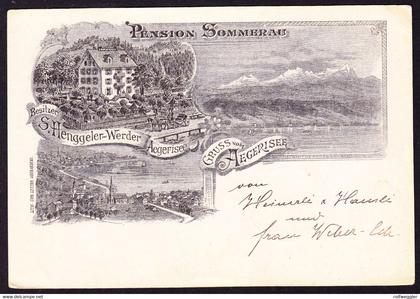 PENSION SOMMERAU
Besitzer
S. Henggeler-Werder
Aegerisee
GRUSS vom
AEGERISEE
von
Heinerli & Hansli
und
frau Weber-